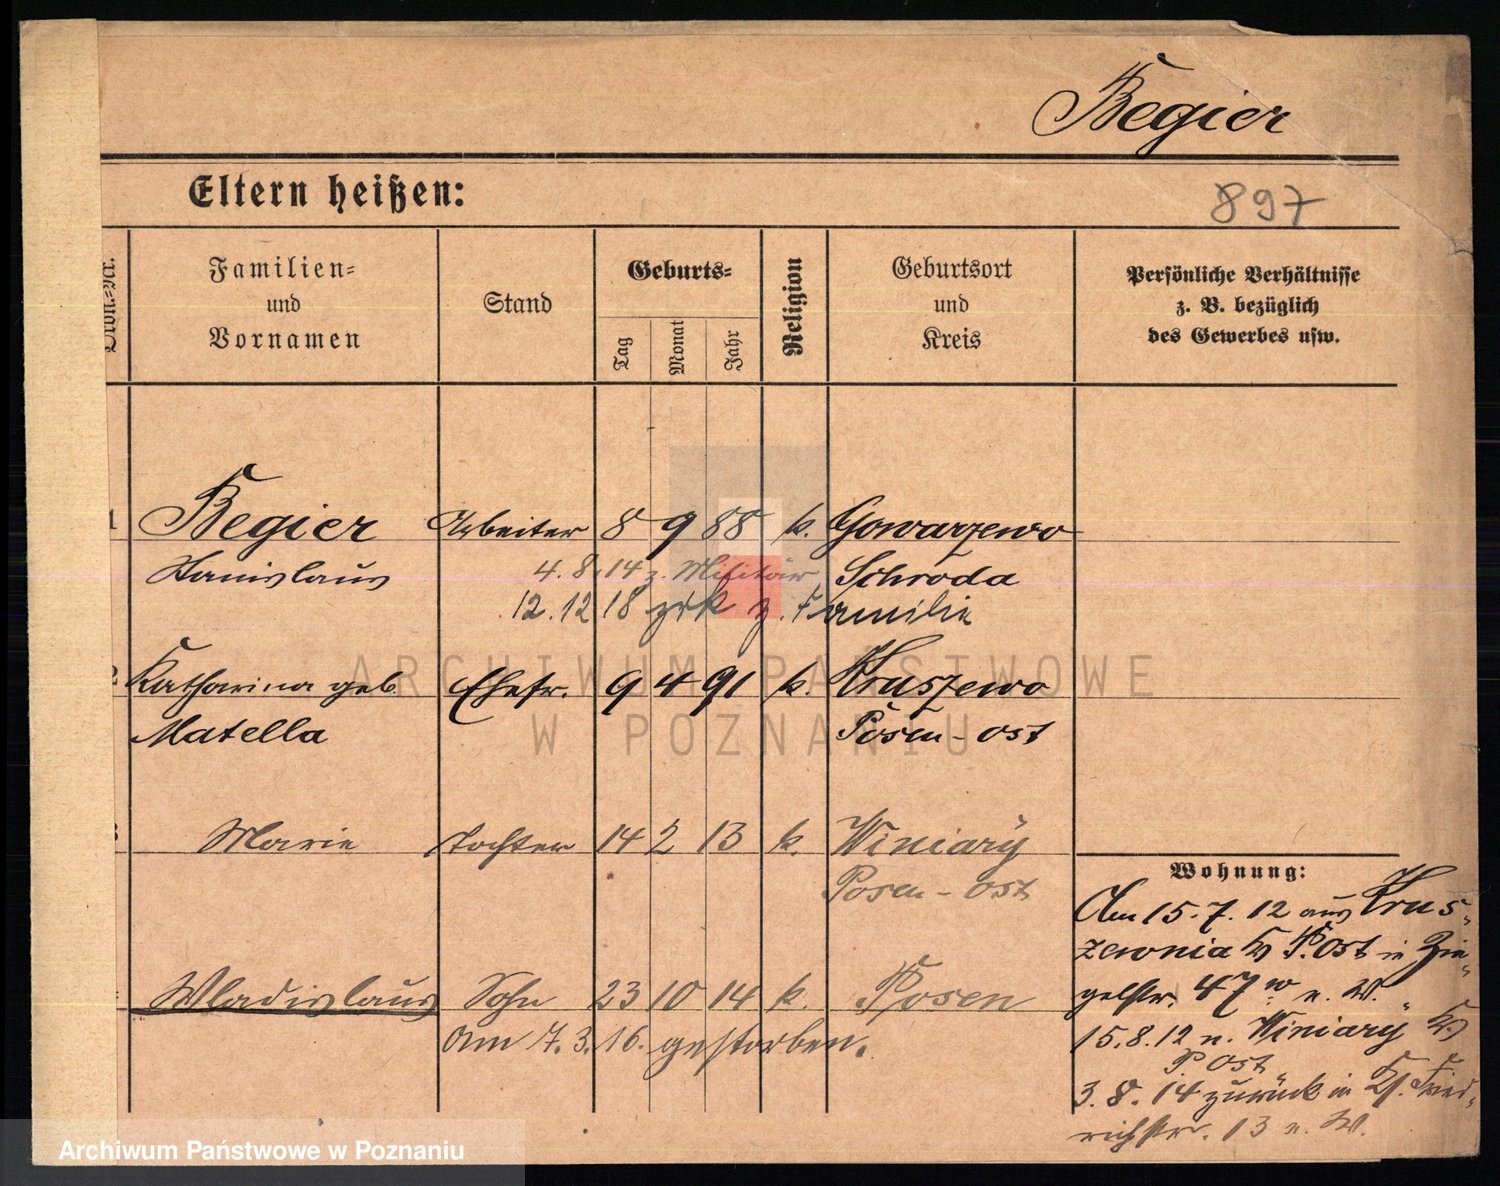 Begier
Eltern heißen:
897
Ordn.-Nr.
Familien-
und
Vornamen
Stand
Geburts-
Tag
Monat
Jahr
Religion
Geburtsort
und
Kreis
Persönliche Verhältnisse
z. B. bezüglich
des Gewerbes usw.
1 Begier Arbeiter 8 9 88 k. Gowarzewo
Stanislaus 4. 8. 14 z. Militär Schroda
12. 12 18 zrk z. Familie
2 Katharina geb. Ehefr. 9 4 91 k. Kruszewo
Matella Posen-ost
3 Marie Tochter 14 2 13 k. Winiary
Posen-ost
Wladislaus Sohn 23 10 14 k. Posen
Am 7. 3. 16. gestorben.
Wohnung:
Am 15. 7. 12 aus Krus-
zewnia Kr P. Ost in Zie-
gelstr. 47 n. W.
15. 8. 12 n. Winiary Kr
P. Ost
3. 8. 14 zurück in Kl. Fried-
richstr. 13 n. W.
ARCHIWUM PAŃSTWOWE
W POZNANIU
Archiwum Państwowe w Poznaniu